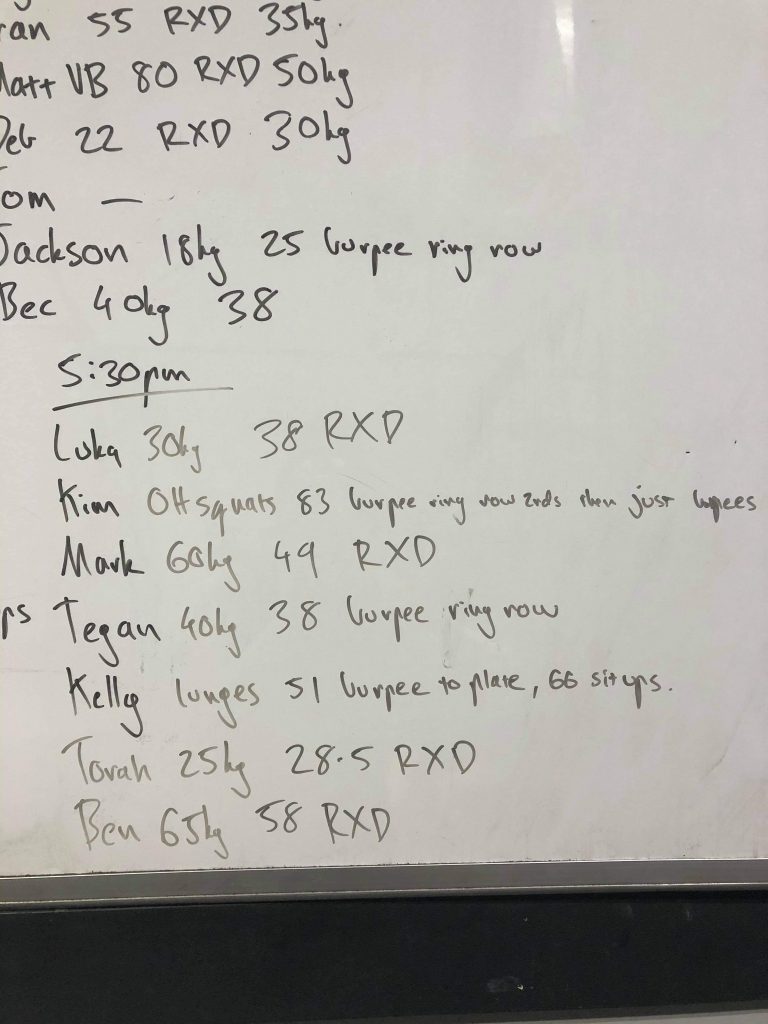 ran 55 RXD 35kg.
Matt VB 80 RXD 50kg
Deb 22 RXD 30kg
om —
Jackson 18kg 25 burpee ring row
Bec 40kg 38
5:30pm
Luka 30kg 38 RXD
Kim OH squats 83 burpee ring row 2rds then just burpees
Mark 60kg 49 RXD
ps Tegan 40kg 38 burpee ring row
Kelly lunges 51 burpee to plate, 66 sit ups.
Torah 25kg 28.5 RXD
Ben 65kg 58 RXD